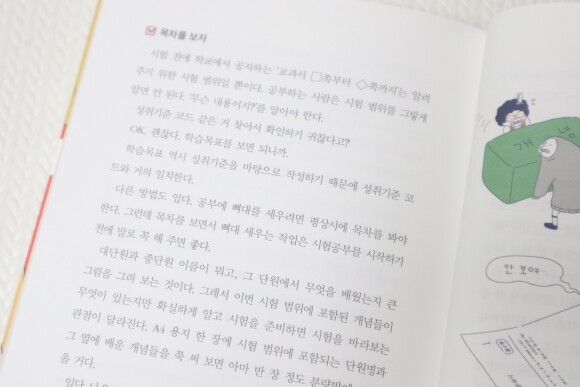 목차를 보자
시험 전에 학교에서 공지하는 '교과서 □쪽부터 ◇쪽까지'는 알려
주기 위한 시험 범위일 뿐이다. 공부하는 사람은 시험 범위를 그렇게
알면 안 된다. '무슨 내용이지?'를 알아야 한다.
성취기준 코드 같은 거 찾아서 확인하기 귀찮다고?
OK. 괜찮다. 학습목표를 보면 되니까.
학습목표 역시 성취기준을 바탕으로 작성하기 때문에 성취기준 코
드와 거의 일치한다.
다른 방법도 있다. 공부에 뼈대를 세우려면 평상시에 목차를 봐야
한다. 그런데 목차를 보면서 뼈대 세우는 작업은 시험공부를 시작하기
전에 말로 꼭 해 주면 좋다.
대단원과 중단원 이름이 뭐고, 그 단원에서 무엇을 배웠는지 큰
그림을 그려 보는 것이다. 그래서 이번 시험 범위에 포함된 개념들이
무엇이 있는지만 확실하게 알고 시험을 준비하면 시험을 바라보는
관점이 달라진다. A4 용지 한 장에 시험 범위에 포함되는 단원명과
그 옆에 배운 개념들을 쭉 써 보면 아마 반 장 정도 분량밖에
올 거다.
개
안 보여…